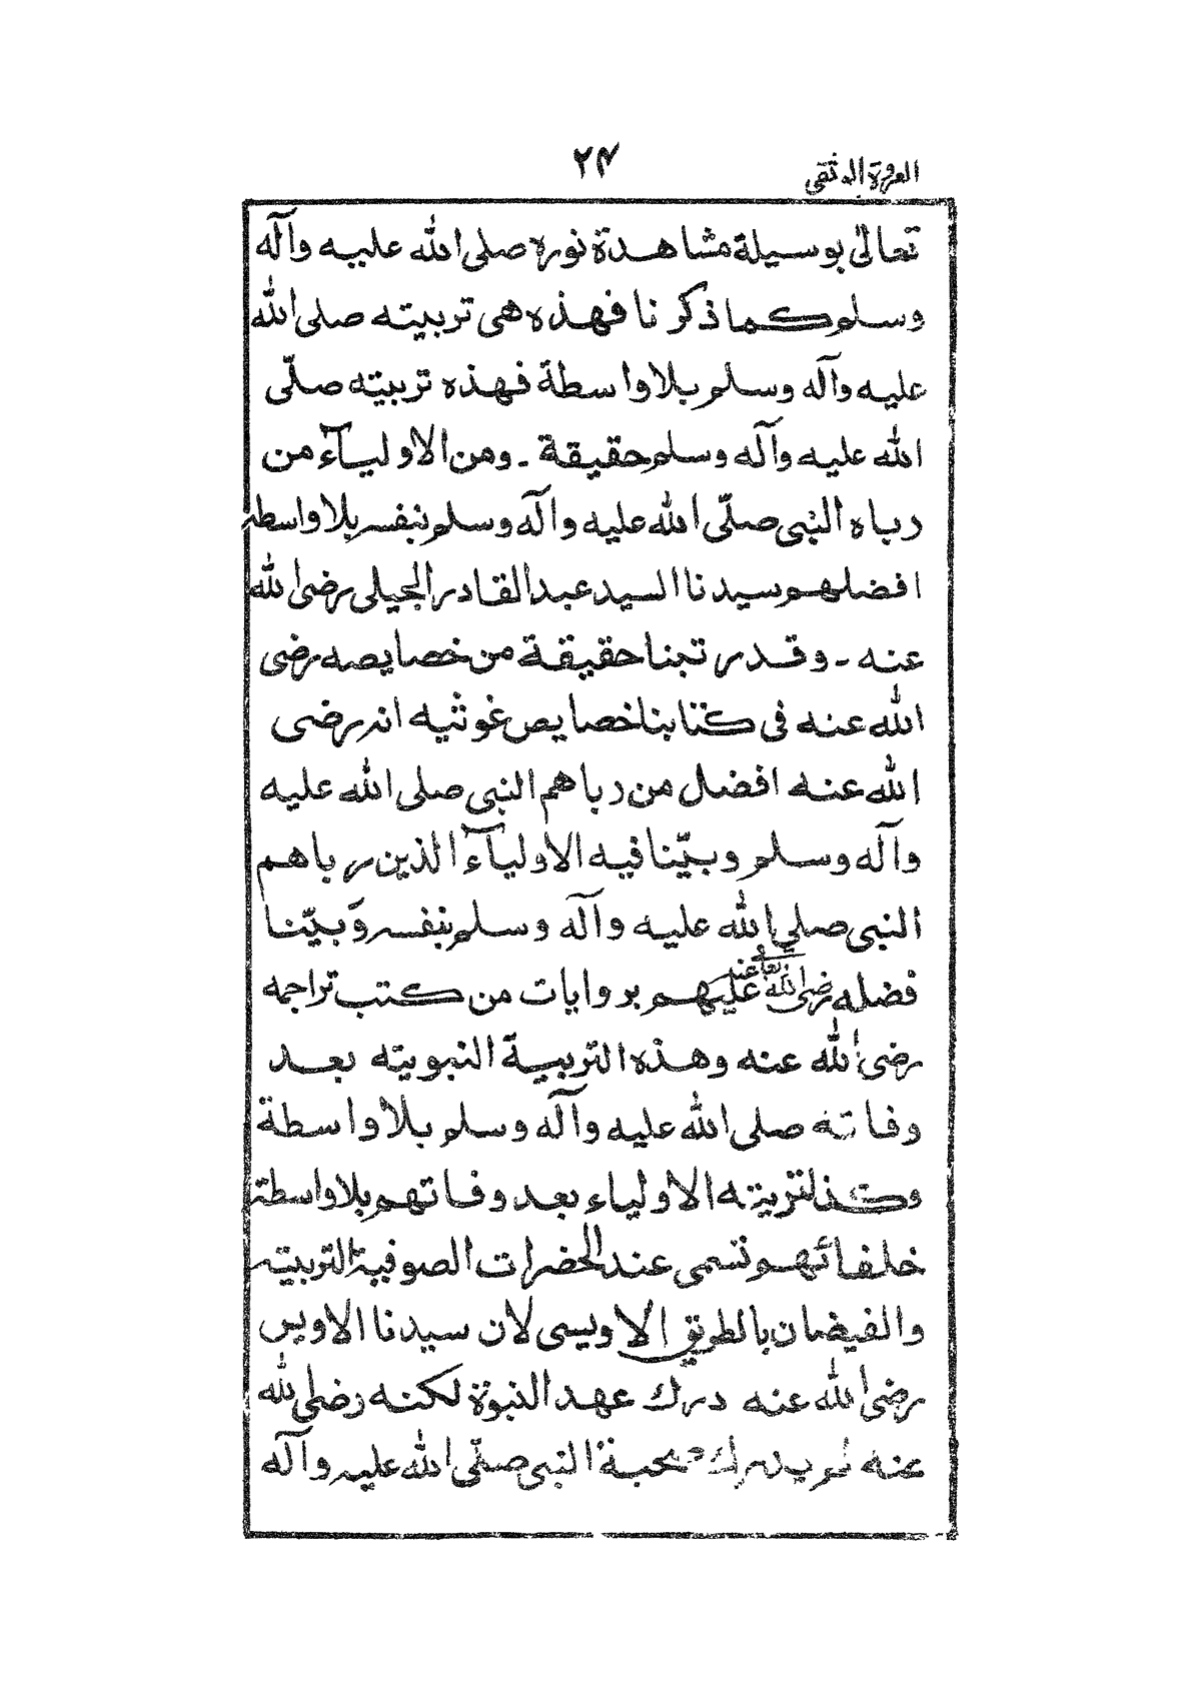 العروة الوثقى
۲۴
تعالىٰ بوسيلة مشاهدة نوره صلى الله عليه وآله
وسلم كما ذكرنا فهذه هى تربيته صلى الله
عليه وآله وسلم بلا واسطة فهذه تربيته صلّى
الله عليه وآله وسلم حقيقة ۔ ومن الاوليآء من
رباه النبى صلّى الله عليه وآله وسلم بنفسه بلا واسطة
افضلهم سيدنا السيد عبد القادر الجيلى رضى الله
عنه ۔ وقد رتبنا حقيقة من خصايصه رضى
الله عنه فى كتابنا خصايص غوثيه انه رضى
الله عنه افضل من رباهم النبى صلى الله عليه
وآله وسلم وبيّنا فيه الاوليآء الذين رباهم
النبى صلى الله عليه وآله وسلم بنفسه وبيّنا
فضله رضى الله تعالى عنه عليهم بروايات من كتب تراجمه
رضى الله عنه وهذه التربية النبويته بعد
وفاته صلى الله عليه وآله وسلم بلا واسطة
وكذا تربيته الاولياء بعد وفاتهم بلا واسطة
خلفائهم تسمى عند الحضرات الصوفية التربيته
والفيضان بالطريق الاويسى لان سيدنا الاويس
رضى الله عنه درك عهد النبوة لكنه رضى الله
عنه لم يدرك صحبة النبى صلّى الله عليه وآله